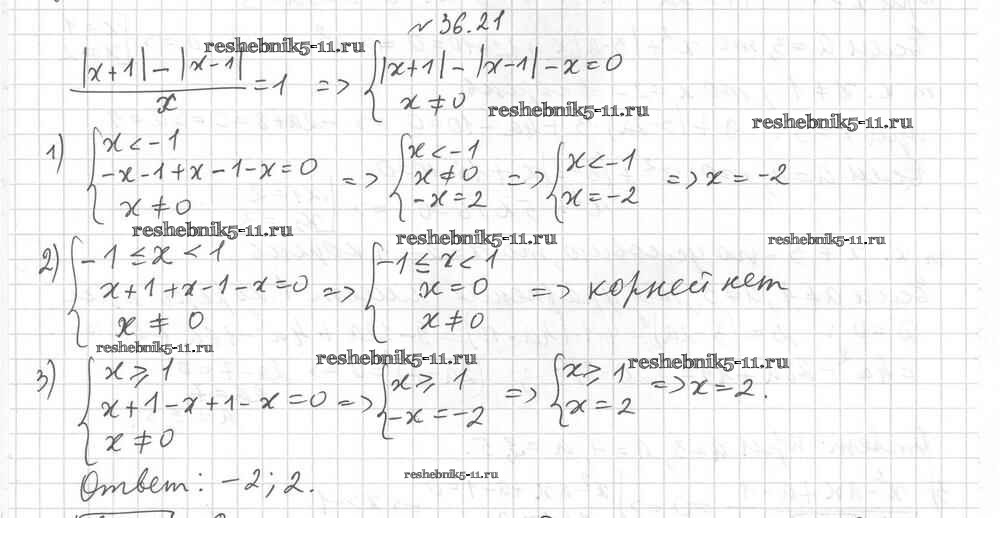 № 36.21
reshebnik5-11.ru
|x+1| - |x-1| / x = 1 => { |x+1| - |x-1| - x = 0
x ≠ 0
reshebnik5-11.ru
reshebnik5-11.ru
1) { x < -1
-x-1+x-1-x=0
x ≠ 0
=> { x < -1
x ≠ 0
-x = 2
=> { x < -1
x = -2
=> x = -2
reshebnik5-11.ru
reshebnik5-11.ru
reshebnik5-11.ru
2) { -1 ≤ x < 1
x+1+x-1-x=0
x ≠ 0
=> { -1 ≤ x < 1
x = 0
x ≠ 0
=> корней нет
reshebnik5-11.ru
reshebnik5-11.ru
reshebnik5-11.ru
3) { x ⩾ 1
x+1-x+1-x=0
x ≠ 0
=> { x ⩾ 1
-x = -2
=> { x ⩾ 1
x = 2
=> x = 2.
Ответ: -2; 2.
reshebnik5-11.ru